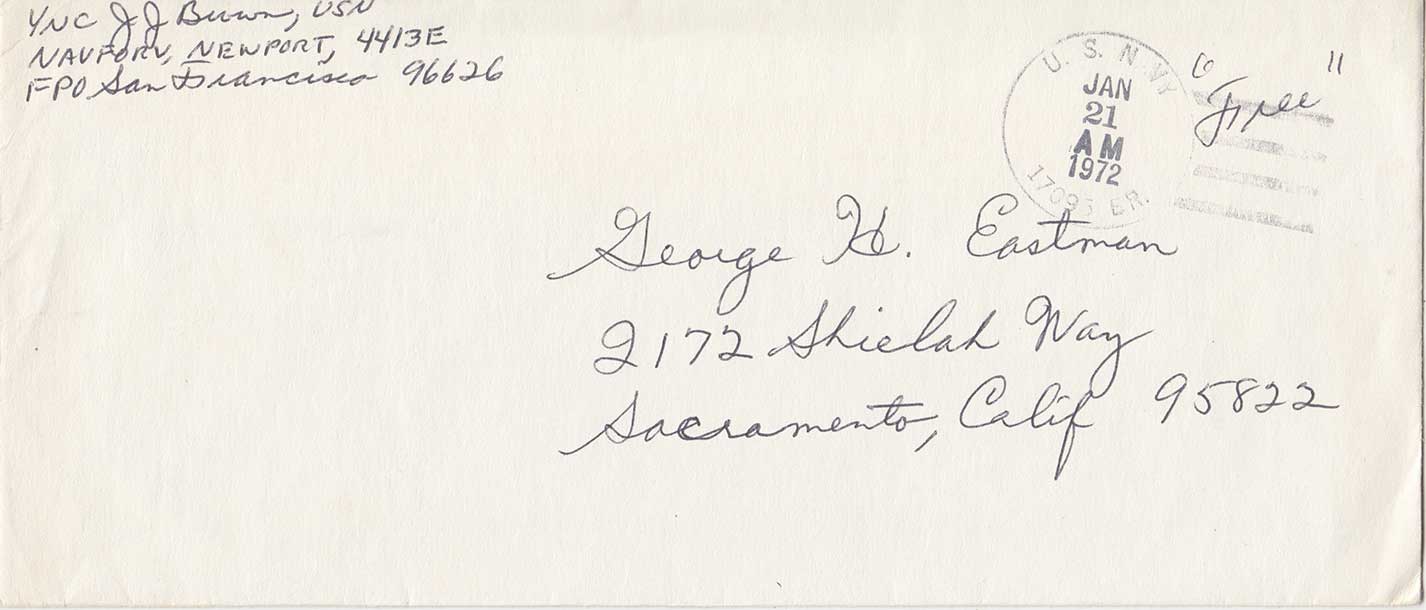 YNC J J Brown, USN
NAVFORV, NEWPORT, 4413E
FPO San Francisco 96626
U. S. NAVY
JAN
21
AM
1972
17093 BR.
"Free"
George H. Eastman
2172 Shielah Way
Sacramento, Calif 95822